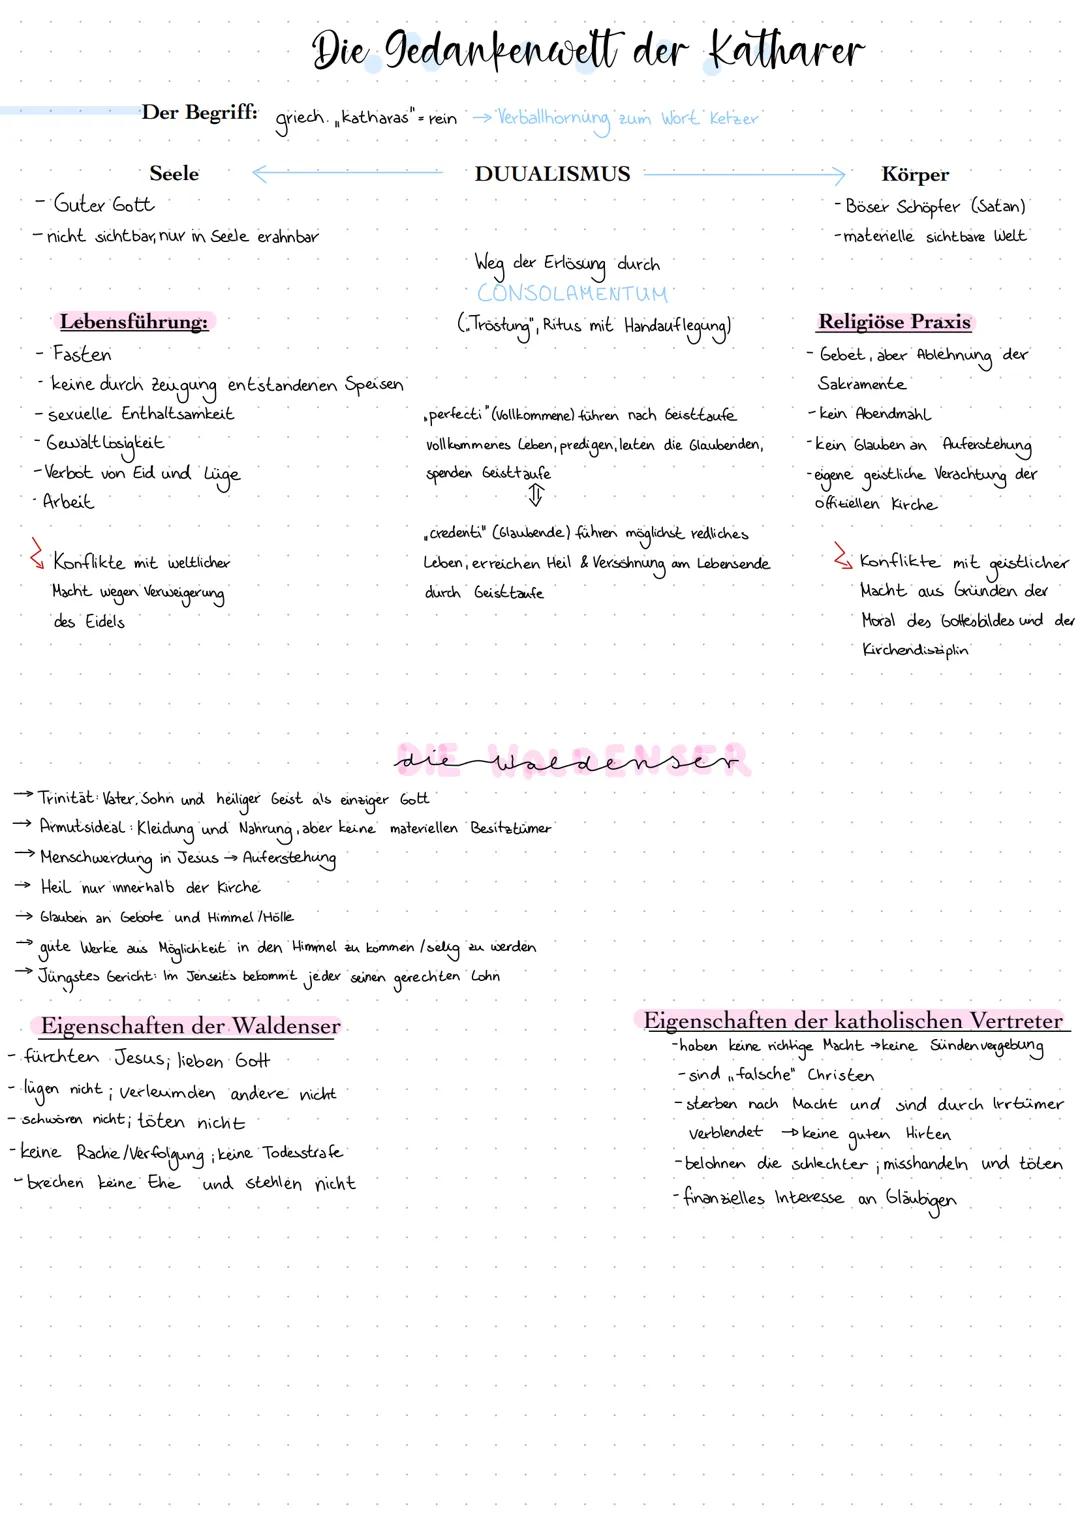 Die Gedankenwelt der Katharer
Der Begriff: griech. „katharas" = rein → Verballhornung zum Wort Ketzer
Seele ← DUUALISMUS → Körper
- Guter Gott
- nicht sichtbar, nur in Seele erahnbar
- Böser Schöpfer (Satan)
- materielle sichtbare Welt
Weg der Erlösung durch
CONSOLAMENTUM
(„Tröstung", Ritus mit Handauflegung)
Lebensführung:
- Fasten
- keine durch Zeugung entstandenen Speisen
- sexuelle Enthaltsamkeit
- Gewaltlosigkeit
- Verbot von Eid und Lüge
- Arbeit
Konflikte mit weltlicher
Macht wegen Verweigerung
des Eidels
„perfecti" (Vollkommene) führen nach Geisttaufe
vollkommenes Leben, predigen, leiten die Glaubenden,
spenden Geisttaufe
⇕
„credenti" (Glaubende) führen möglichst redliches
Leben, erreichen Heil & Versöhnung am Lebensende
durch Geisttaufe
Religiöse Praxis
- Gebet, aber Ablehnung der
Sakramente
- kein Abendmahl
- kein Glauben an Auferstehung
- eigene geistliche Verachtung der
offiziellen Kirche
Konflikte mit geistlicher
Macht aus Gründen der
Moral des Gottesbildes und der
Kirchendisziplin
DIE WALDENSER
die Waldenser
→ Trinität: Vater, Sohn und heiliger Geist als einziger Gott
→ Armutsideal: Kleidung und Nahrung, aber keine materiellen Besitztümer
→ Menschwerdung in Jesus → Auferstehung
→ Heil nur innerhalb der Kirche
→ Glauben an Gebote und Himmel/Hölle
→ gute Werke aus Möglichkeit in den Himmel zu kommen / selig zu werden
→ Jüngstes Gericht: Im Jenseits bekommt jeder seinen gerechten Lohn
Eigenschaften der Waldenser
- fürchten Jesus; lieben Gott
- lügen nicht; verleumden andere nicht
- schwören nicht; töten nicht
- keine Rache/Verfolgung; keine Todesstrafe
- brechen keine Ehe und stehlen nicht
Eigenschaften der katholischen Vertreter
- haben keine richtige Macht → keine Sündenvergebung
- sind „falsche" Christen
- sterben nach Macht und sind durch Irrtümer
verblendet → keine guten Hirten
- belohnen die schlechter; misshandeln und töten
- finanzielles Interesse an Gläubigen